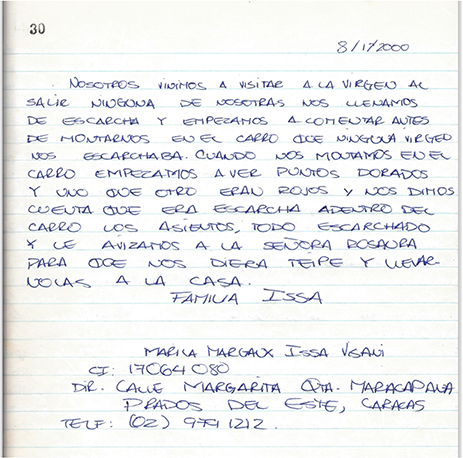 30
8/1/2000
NOSOTROS VINIMOS A VISITAR A LA VIRGEN AL
SALIR NINGUNA DE NOSOTRAS NOS LLENAMOS
DE ESCARCHA Y EMPEZAMOS A COMENTAR ANTES
DE MONTARNOS EN EL CARRO QUE NINGUNA VIRGEN
NOS ESCARCHABA. CUANDO NOS MONTAMOS EN EL
CARRO EMPEZAMOS A VER PUNTOS DORADOS
Y UNO QUE OTRO ERAN ROJOS Y NOS DIMOS
CUENTA QUE ERA ESCARCHA ADENTRO DEL
CARRO LOS ASIENTOS, TODO ESCARCHADO
Y LE AVIZAMOS A LA SEÑORA ROSAURA
PARA QUE NOS DIERA TEIPE Y LLEVAR-
NOLAS A LA CASA.
FAMILIA ISSA
MARILA MARGAUX ISSA
CI: 17064080
DIR. CALLE MARGARITA QTA. MARACAPANA
PRADOS DEL ESTE, CARACAS
TELF: (02) 979 1212.